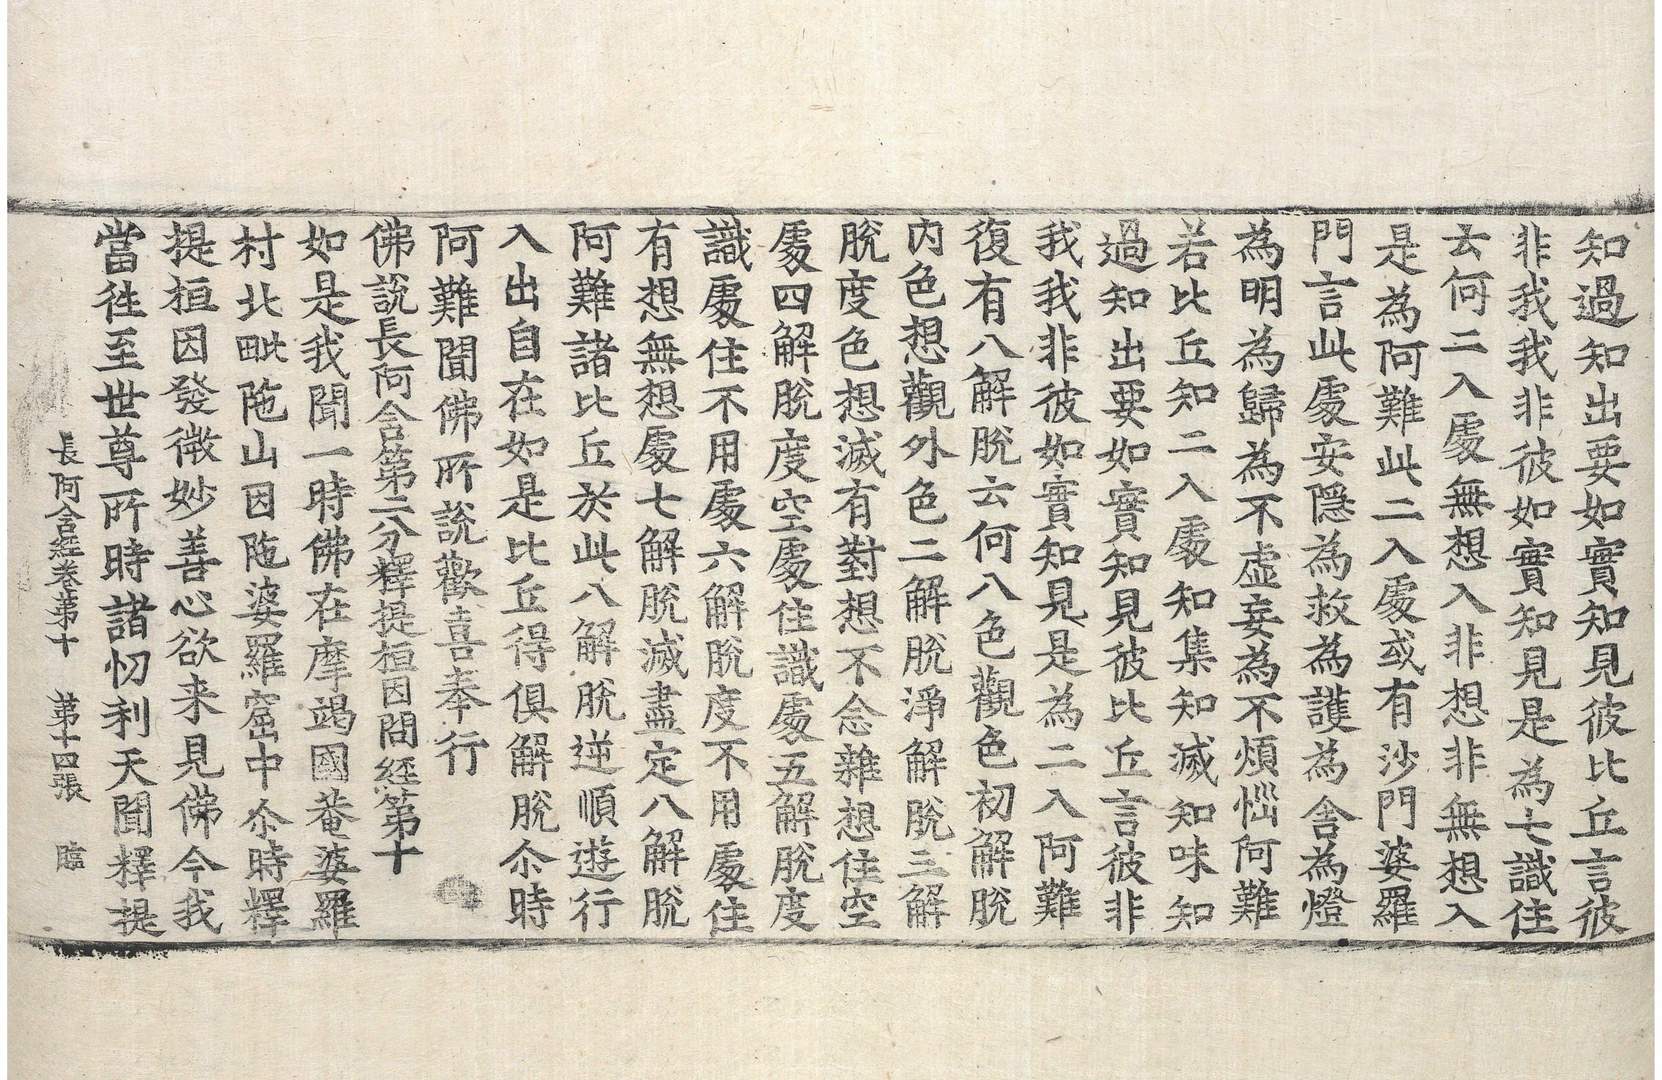 知過知出要如實知見彼比丘言彼
非我我非彼如實知見是為七識住
云何二入處無想入非想非無想入
是為阿難此二入處或有沙門婆羅
門言此處安隱為救為護為舍為燈
為明為歸為不虛妄為不煩惱阿難
若比丘知二入處知集知滅知味知
過知出要如實知見彼比丘言彼非
我我非彼如實知見是為二入阿難
復有八解脫云何八色觀色初解脫
內色想觀外色二解脫淨解脫三解
脫度色想滅有對想不念雜想住空
處四解脫度空處住識處五解脫度
識處住不用處六解脫度不用處住
有想無想處七解脫滅盡定八解脫
阿難諸比丘於此八解脫逆順遊行
入出自在如是比丘得俱解脫尒時
阿難聞佛所說歡喜奉行
佛說長阿含第二分釋提桓因問經第十
如是我聞一時佛在摩竭國菴婆羅
村北毗陁山因陁婆羅窟中尒時釋
提桓因發微妙善心欲来見佛今我
當往至世尊所時諸忉利天聞釋提
長阿含經卷第十 第十四張 臨